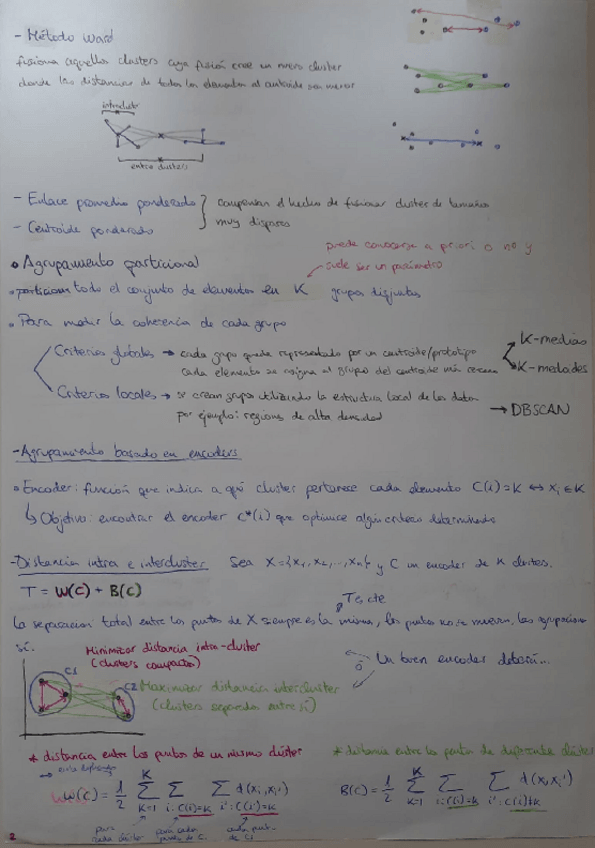 - Método Ward
fusiona aquellos clusters cuya fusión cree un nuevo cluster
donde las distancias de todos los elementos al centroide sea menor
intracluster
entre clusters
- Enlace promedio ponderado
- Centroide ponderado
compensan el hecho de fusionar cluster de tamaños
muy dispares
• Agrupamiento particional
puede conocerse a priori o no y
suele ser un parámetro
• particionar todo el conjunto de elementos en K grupos disjuntos
• Para medir la coherencia de cada grupo
Criterios globales → cada grupo queda representado por un centroide/prototipo
cada elemento se asigna al grupo del centroide más cercano
K-medias
K-medoides
Criterios locales → se crean grupos utilizando la estructura local de los datos
por ejemplo: regiones de alta densidad
→ DBSCAN
- Agrupamiento basado en encoders
• Encoder: función que indica a qué cluster pertenece cada elemento C(i)=K ↔ xi ∈ K
↳ Objetivo: encontrar el encoder C*(i) que optimice algún criterio determinado
- Distancia intra e intercluster Sea X={x1, x2, ..., xn} y C un encoder de K clusters.
T = W(C) + B(C)
T es cte
La separación total entre los puntos de X siempre es la misma, los puntos no se mueven, las agrupaciones
sí.
Minimizar distancia intra-cluster
(clusters compactos)
Un buen encoder debería...
ó
C1
C2
Maximizar distancia intercluster
(clusters separados entre sí)
* distancia entre los puntos de un mismo clúster
* distancia entre los puntos de diferente clúster
W(C) = 1/2 K Σ K=1 Σ i:C(i)=K Σ i':C(i')=K d(xi,xi')
B(C) = 1/2 K Σ K=1 Σ i:C(i)=K Σ i':C(i')≠K d(xi,xi')
para cada clúster
para cada
2